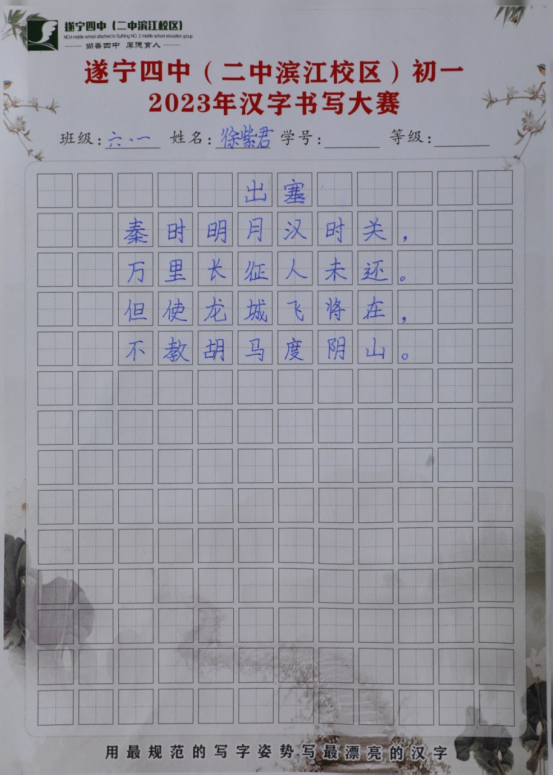 遂宁四中(二中滨江校区)
尚善四中 厚德育人
遂宁四中(二中滨江校区)初一
2023年汉字书写大赛
班级:六.一 姓名:徐紫君 学号: 等级:
出塞
秦时明月汉时关,
万里长征人未还。
但使龙城飞将在,
不教胡马度阴山。
用最规范的写字姿势写最漂亮的汉字